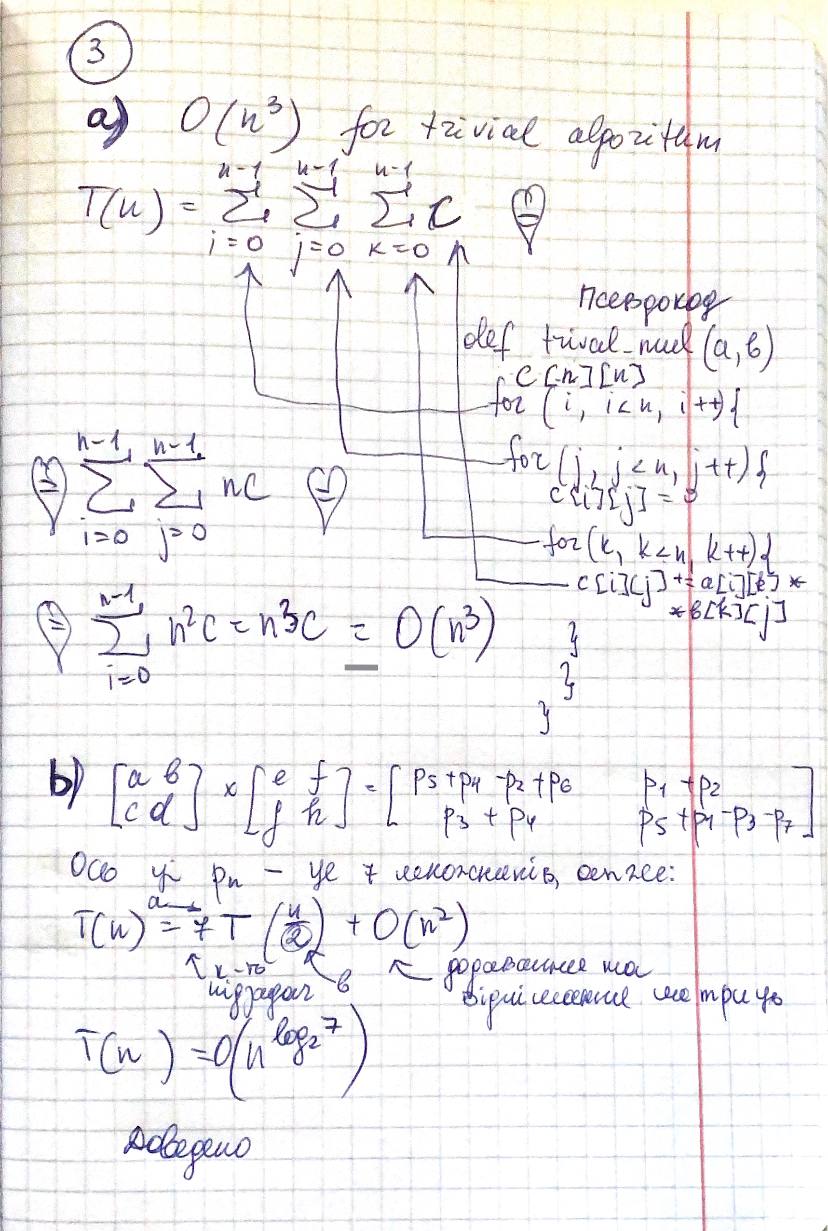 3
a) O(n³) for trivial algorithm
T(n) = ∑_{i=0}^{n-1} ∑_{j=0}^{n-1} ∑_{k=0}^{n-1} c =
Псевдокод
def trival_mul(a, b)
c[n][n]
for (i, i<n, i++){
for (j, j<n, j++){
c[i][j] = 0
for (k, k<n, k++){
c[i][j] += a[i][k] *
* b[k][j]
}
}
}
= ∑_{i=0}^{n-1} ∑_{j=0}^{n-1} nc =
= ∑_{i=0}^{n-1} n²c = n³c = O(n³)
b) [a b
c d] × [e f
g h] = [p5+p4-p2+p6 p1+p2
p3+p4 p5+p1-p3-p7]
Ось ці pn – це 7 множників, отже:
a
T(n) = 7T(n/2) + O(n²)
к-ть підзадач
b
додавання та віднімання матриць
T(n) = O(n^{log₂7})
Доведено